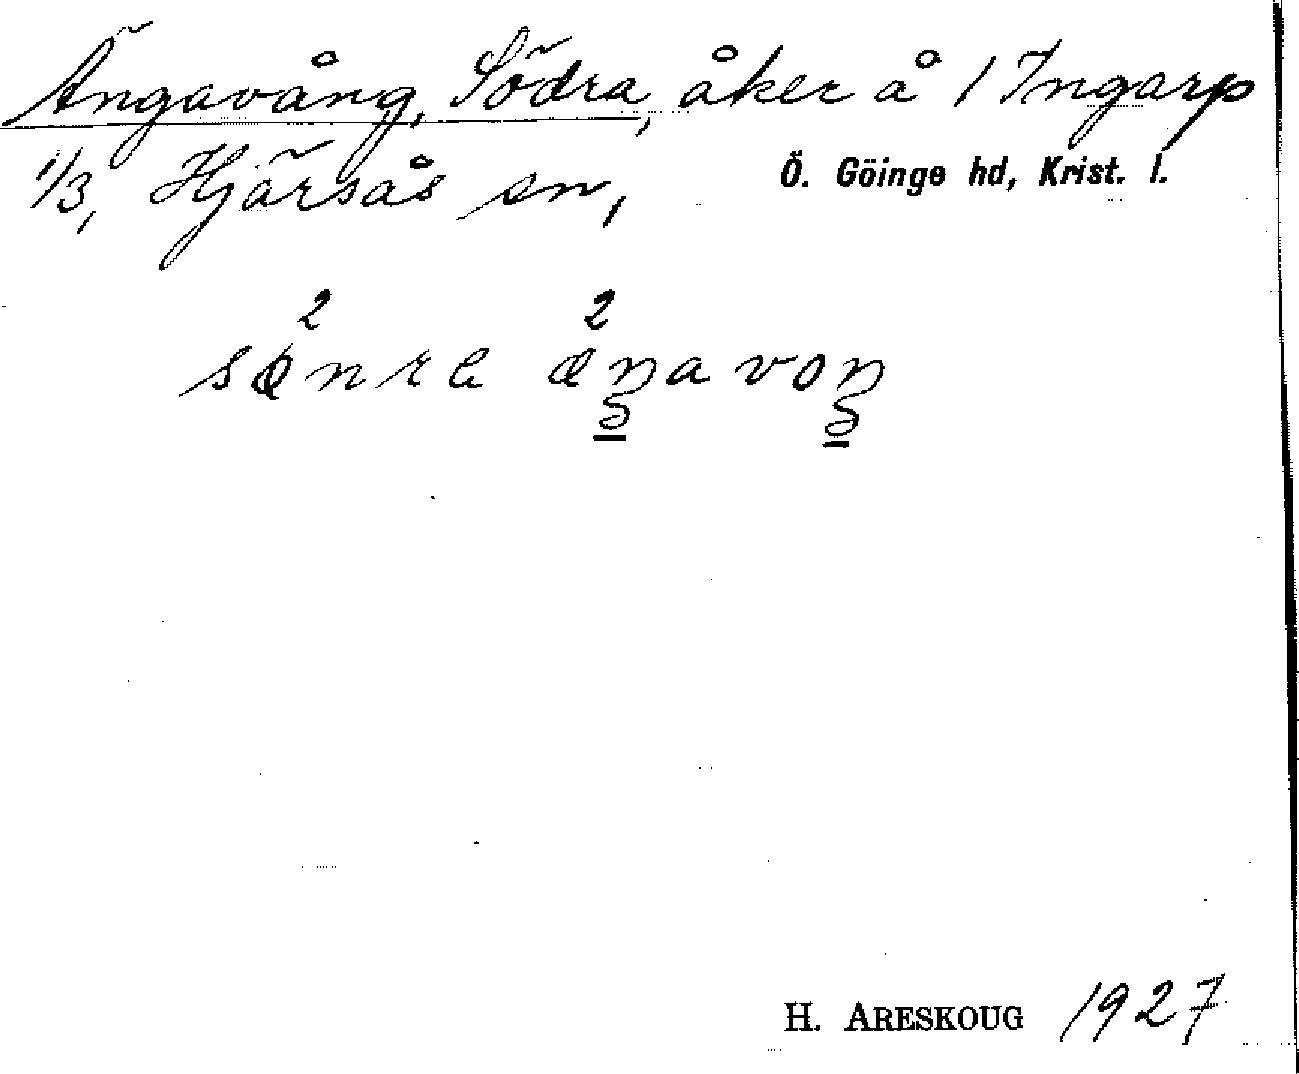 Ängavång, Södra, åker å 1 Ingarp
1/3, Hjärsås sn, Ö. Göinge hd, Krist. l.
2 2
sønra æŋavoŋ
H. ARESKOUG 1927